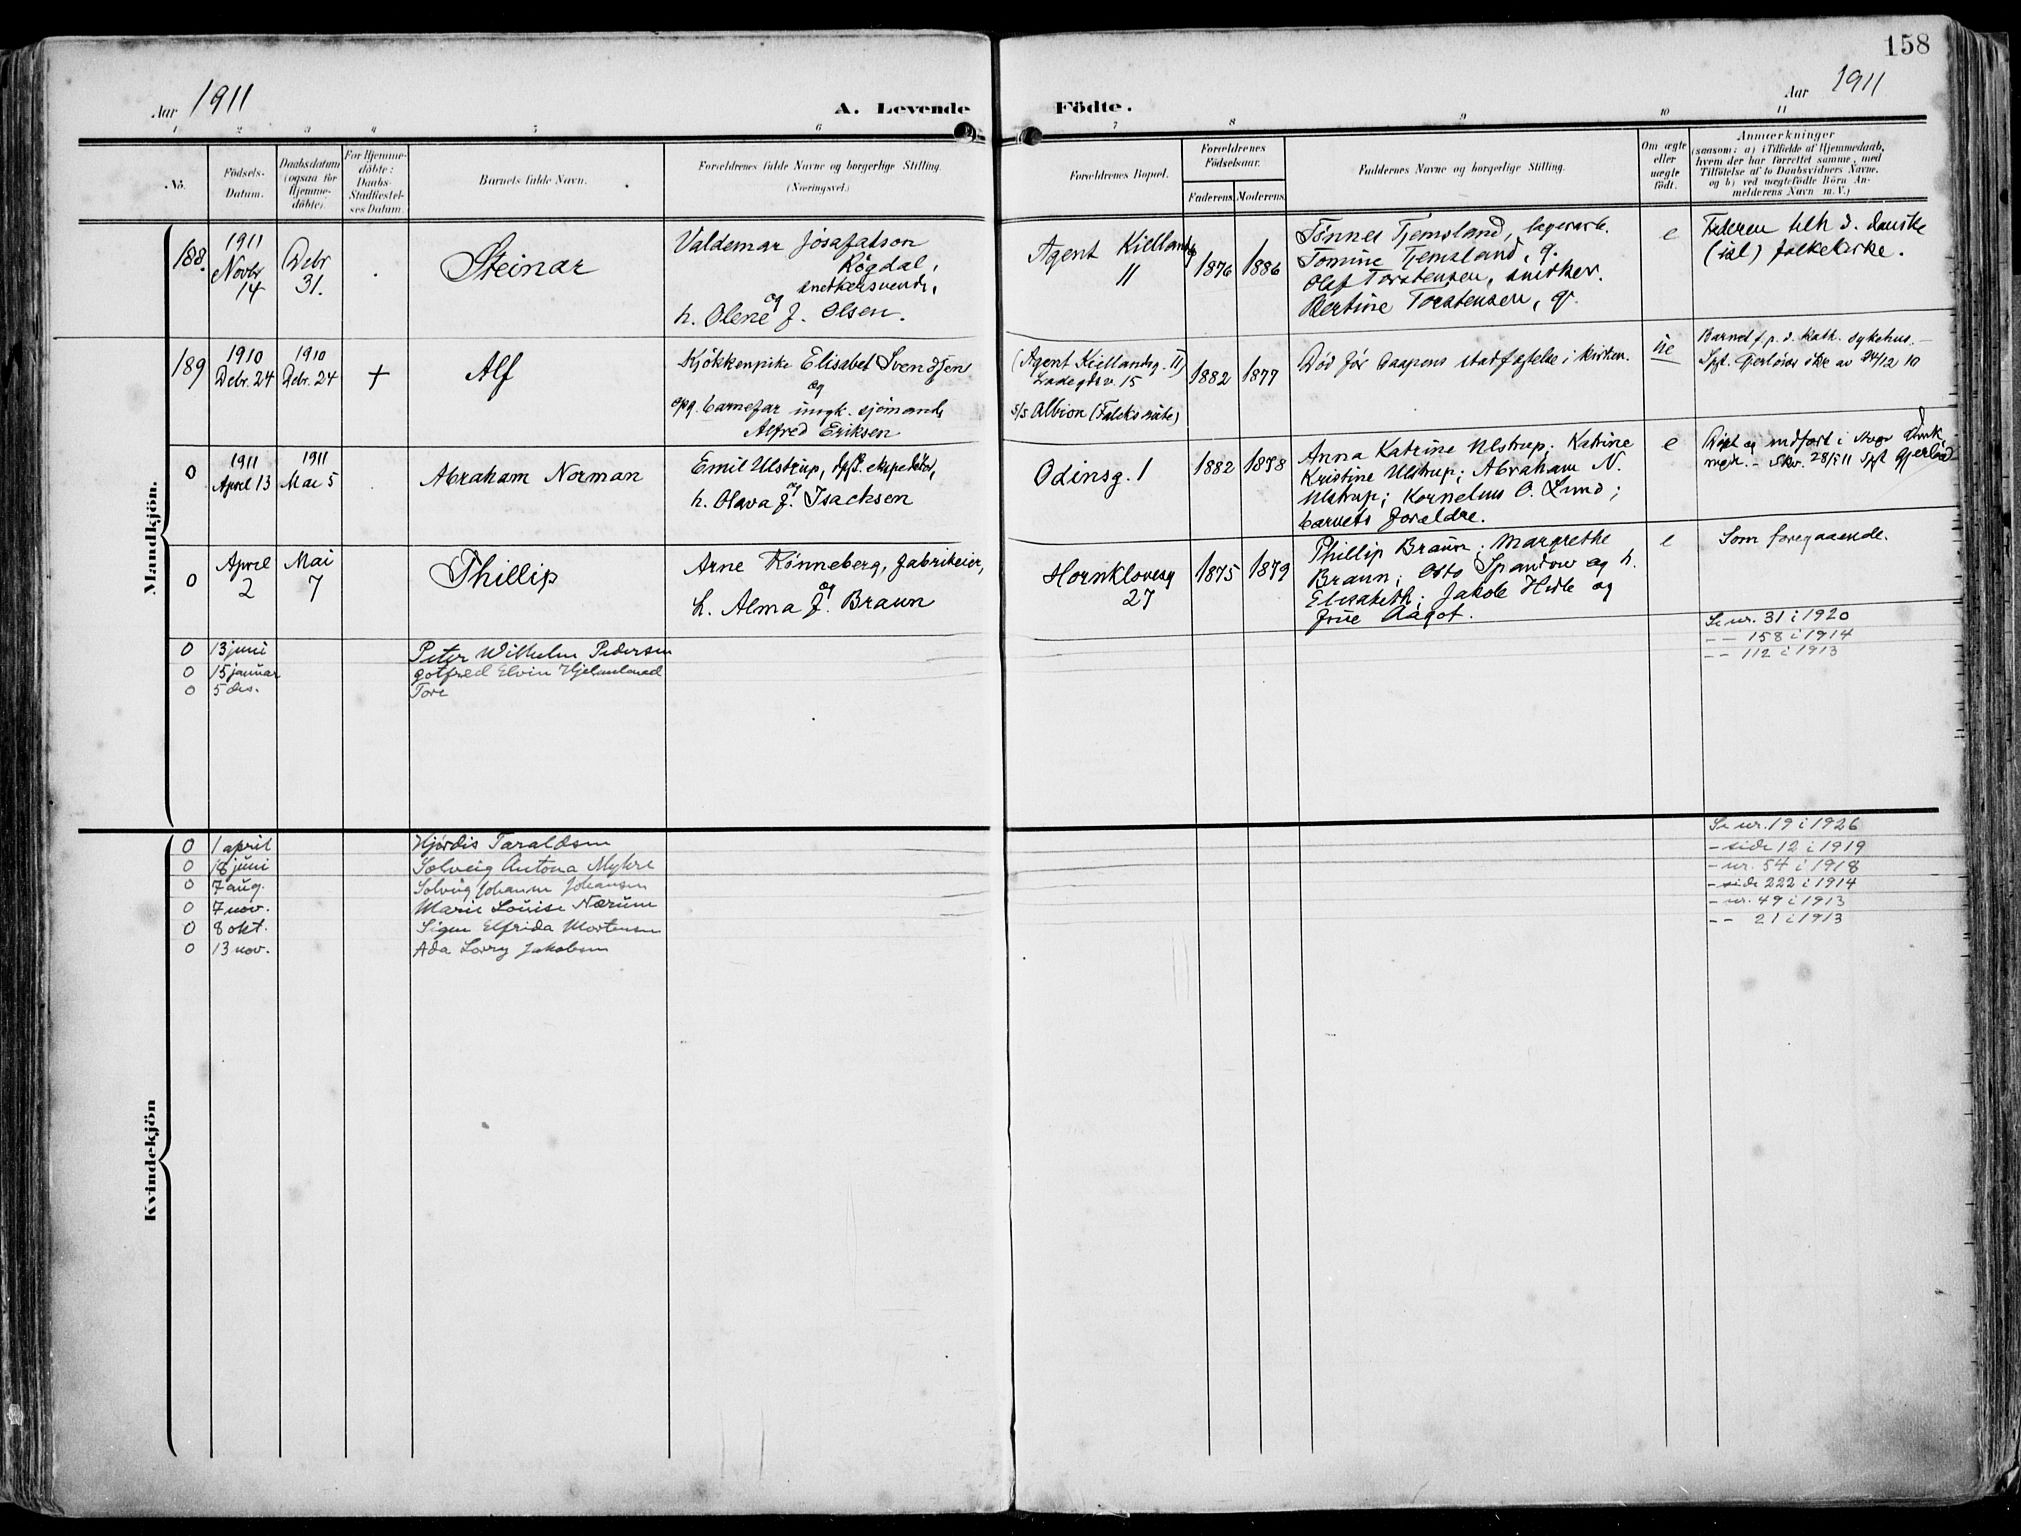 158
Aar 1911
A. Levende Födte.
Aar 1911
1 2 3 4 5 6 7 8 9 10 11
No.
Födsels-
Datum.
Daabsdatum
(ogsaa for
Hjemme-
döbte).
For Hjemme-
döbte:
Daabs-
Stadfæstel-
ses Datum.
Barnets fulde Navn.
Forældrenes fulde Navne og borgerlige Stilling.
(Næringsvei.)
Forældrenes Bopæl.
Forældrenes
Födselsaar.
Faderens Moderens
Faddernes Navne og borgerlige Stilling.
Om ægte
eller
uægte
födt.
Anmærkninger
(saasom: a) i Tilfælde af Hjemmedaab,
hvem der har forrettet samme, med
Tilföielse af to Daabsvidners Navne,
og b) ved uægtefödte Börn An-
melderens Navn m. V.)
Mandkjön.
188.
1911
Novbr
14
Debr
31.
Steinar
Valdemar Josafatson
Røgdal,
snedkersvend,
og
h. Olene f. Olsen.
Agent Kiellandsg
11
1876 1886
Tönnes Tjemsland, lagerarb.
Tomine Tjemsland, g.
Olaf Torstensen, snidker.
Bertine Torstensen, g.
e
Faderen tilh d. danske
(isl) folkekirke.
189
1910
Debr. 24
1910
Debr. 24
+
Alf
Kjøkkenpike Elisabet Svendsen
og
opg. barnefar ungk. sjömand
Alfred Eriksen
(Agent Kiellandsg. 11)
Ladegdsv. 15
S/S Albion (Falcks rute)
1882 1877
Død før daapens stadfæstelse i kirken.
ue
Barnet f. p. d. kath. sykehus.
24/12 10
0
1911
April 13
1911
Mai 5
Abraham Norman
Emil Ulstrup, dpsk. ekspeditør,
og
h. Olava f. Isachsen
Odinsg. 1
1882 1878
Anna Katrine Ulstrup; Katrine
Kristine Ulstrup; Abraham N.
Ulstrup; Kornelius O. Lund;
barnets forældre.
e
Døpt og indført i
28/5 11
0
April
2
Mai
7
Phillip
Arne Rønneberg, fabrikeier,
og
h. Alma f. Braun
Hornklovesg
27
1875 1879
Phillip Braun; Margrethe
Braun; Otto Spandow og h.
Elisabeth; Jakob Hidle og
frue Aagot.
e
Som foregaaende.
0 13 juni Peter Wilhelm Pedersen Se nr. 31 i 1920
0 15 januar Gotfred Elvin Hjelmeland - - 158 i 1914
0 5 des. Tore - - 112 i 1913
Kvindekjön
0 1 april Hjørdis Taraldsen Se nr. 19 i 1926
0 18 juni Solveig Antona Myhre - side 12 i 1919
0 7 aug. Solveig Johanne Johansen - nr. 54 i 1918
0 7 nov. Marie Louise Nærum - side 222 i 1914
0 8 okt. Signe Elfrida Mortensen - nr. 49 i 1913
0 13 nov. Ada Lovvy Jakobsen - - 21 i 1913